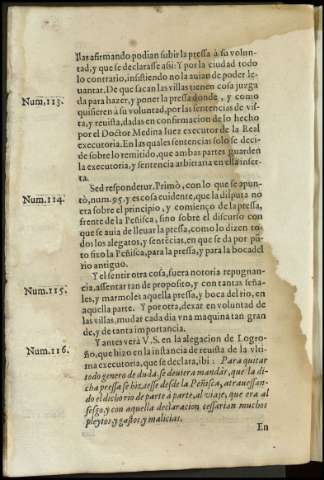 llas afirmando podian subir la pressa à su volun-
tad, y que se declarasse assi: Y por la ciudad todo
lo contrario, insistiendo no la auian de poder le-
uantar. De que sacan las villas tienen cosa juzga
Num.113.
da para hazer, y poner la pressa donde, y como
quisieren à su voluntad, por las sentencias de vis-
ta, y reuista, dadas en confirmacion de lo hecho
por el Doctor Medina Iuez executor de la Real
executoria. En las quales sentencias solo se deci-
de sobre lo remitido, que ambas partes guarden
la executoria, y sentencia arbitraria en ella inser-
ta.
Num.114.
Sed respondetur. Primò, con lo que se apun-
tò, num. 95. y es cosa euidente, que la disputa no
era sobre el principio, y comienço de la pressa,
frente de la Peñisca, sino sobre el discurso con
que se auia de lleuar la pressa, como lo dizen to-
dos los alegatos, y sentẽcias, en que se da por pũ
to fixo la Peñisca, para la pressa, y para la bocadel
rio antiguo.
Num.115.
Y el sentir otra cosa, fuera notoria repugnan-
cia, assentar tan de proposito, y con tantas seña-
les, y marmoles aquella pressa, y boca del rio, en
aquella parte. Y por otra, dexar en voluntad de
las villas, mudar cada dia vna maquina tan gran
de, y de tanta importancia.
Num.116.
Y antes verà V.S. en la alegacion de Logro-
ño, que hizo en la instancia de reuista de la vlti-
ma executoria, que se declara, ibi: Para quitar
todo genero de duda, se deuiera mandar, que la di-
cha pressa se hiziesse desde la Peñisca, atrauessan-
do el dicho rio de parte à parte, al viaje, que era al
sesgo, y con aquella declaracion cessarian muchos
pleytos, y gastos, y malicias.
En